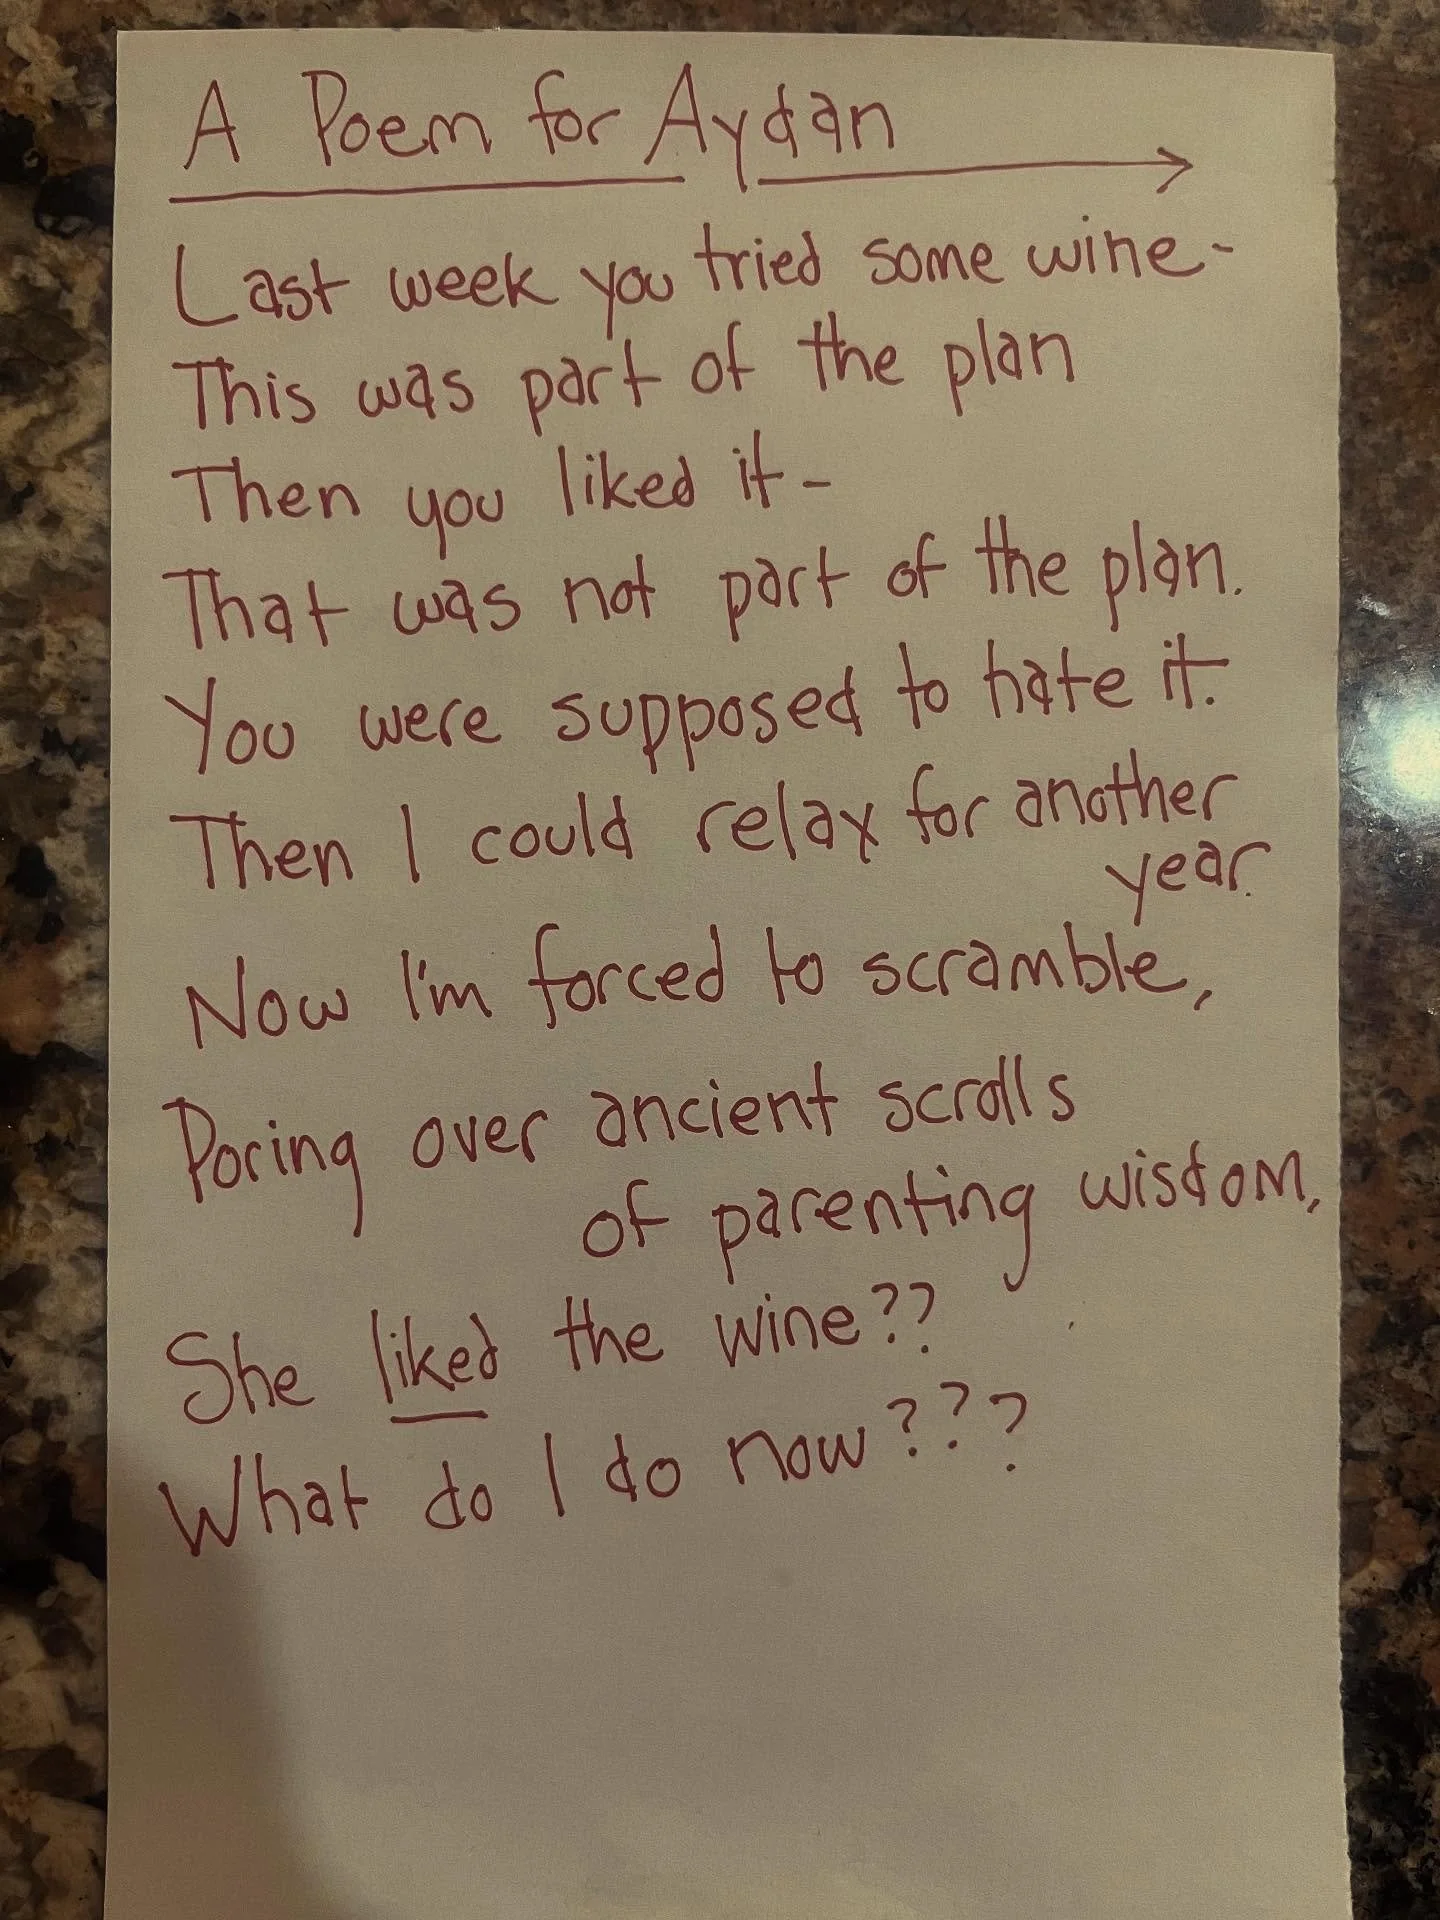 A Poem for Aydan
Last week you tried some wine-
This was part of the plan
Then you liked it-
That was not part of the plan.
You were supposed to hate it.
Then I could relax for another
year.
Now I'm forced to scramble,
Poring over ancient scrolls
of parenting wisdom,
She liked the wine??
What do I do now???